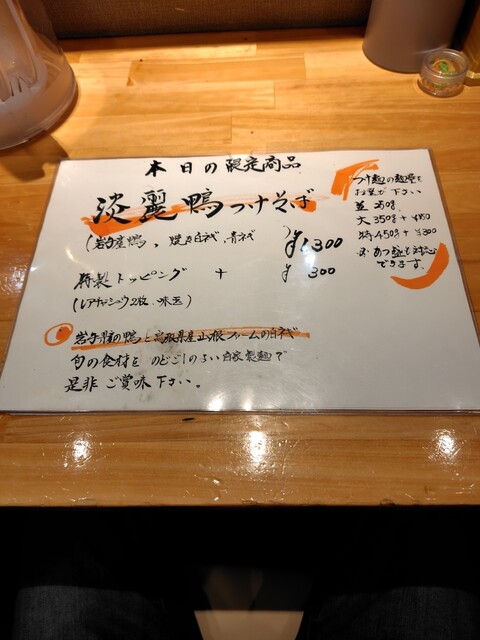 本日の限定商品
淡麗鴨つけそば
(岩手産鴨、焼き白ネギ、青ネギ ¥1,300
特製トッピング + ¥300
(レアチャーシュウ2枚、味玉)
岩手県の鴨と鳥取県産山根ファームの白ネギ
旬の食材を のどごしのよい自家製麺で
是非ご賞味下さい。
つけ麺の麺量を
お選び下さい
並 250g
大 350g + ¥150
特 450g + ¥300
※あつ盛も対応
できます。